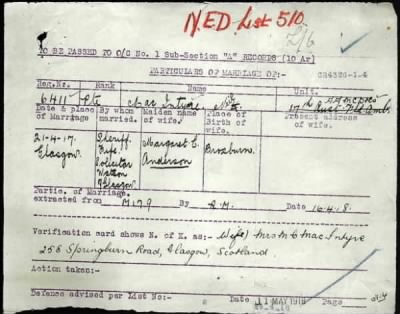 N.E.D. List 510
L/6
TO BE PASSED TO O/C No. 1 Sub-Section "A" RECORDS (10 Ar)
PARTICULARS OF MARRIAGE OF:- CR4326-1-4
Reg.No. Rank Name Unit.
6411 Pte Mac Intyre, N. 17th Aust. Fld. Amb.
Date & place of Marriage By whom married. Maiden name of wife. Place of Birth of wife. Present address of wife.
21-4-17. Glasgow. Sheriff. Margaret C. Anderson Broxburn.
Watson
Glasgow.
Partic. of Marriage.
extracted from M179 By Date 16.4.18.
Verification card shows N. of K. as:- (Wife) Mrs M C Mac Intyre
258 Springburn Road, Glasgow, Scotland.
Action taken:-
Defence advised per List No:- Date 11 MAY 1918